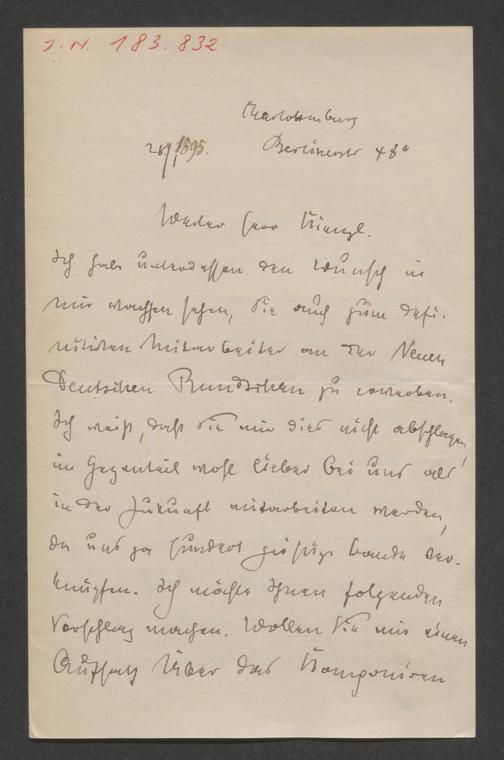 J. N. 183.832
Charlottenburg
Berlinerstr 48a
1895.
Werter Herr Kienzl.
Ich habe unterdessen den Wunsch in
mir wachsen sehen, Sie auch zum defi-
nitiven Mitarbeiter an der Neuen
Deutschen Rundschau zu erwerben.
Ich weiß, daß Sie mir dies nicht abschlagen,
im Gegenteil wohl lieber bei uns als
in der Zukunft mitarbeiten werden,
da uns ja hundert geistige Bande ver-
knüpfen. Ich möchte Ihnen folgenden
Vorschlag machen. Wollen Sie mir einen
Aufsatz über das Komponiren